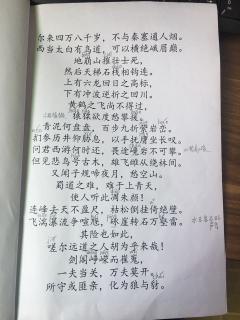 尔来四万八千岁，不与秦塞通人烟。
西当太白有鸟道，可以横绝峨眉巅。
地崩山摧壮士死，
然后天梯石栈相钩连。
上有六龙回日之高标，
下有冲波逆折之回川。
黄鹤之飞尚不得过，
猿猱欲度愁攀援。
青泥何盘盘，百步九折萦岩峦。
扪参历井仰胁息，以手抚膺坐长叹。
问君西游何时还，畏途巉岩不可攀。
但见悲鸟号古木，雄飞雌从绕林间。
又闻子规啼夜月，愁空山。
蜀道之难，难于上青天，
使人听此凋朱颜！
连峰去天不盈尺，枯松倒挂倚绝壁。
飞湍瀑流争喧豗，砯崖转石万壑雷。
其险也如此，
嗟尔远道之人胡为乎来哉！
剑阁峥嵘而崔嵬，
一夫当关，万夫莫开。
所守或匪亲，化为狼与豺。